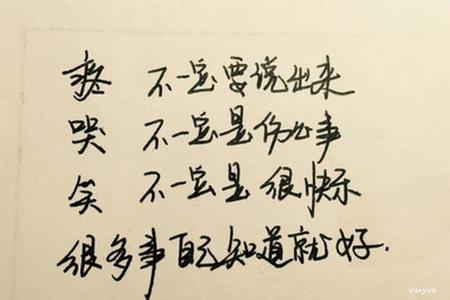 疼 不一定要说出来
哭 不一定是伤心事
笑 不一定是很快乐
很多事自己知道就好.
xueyou